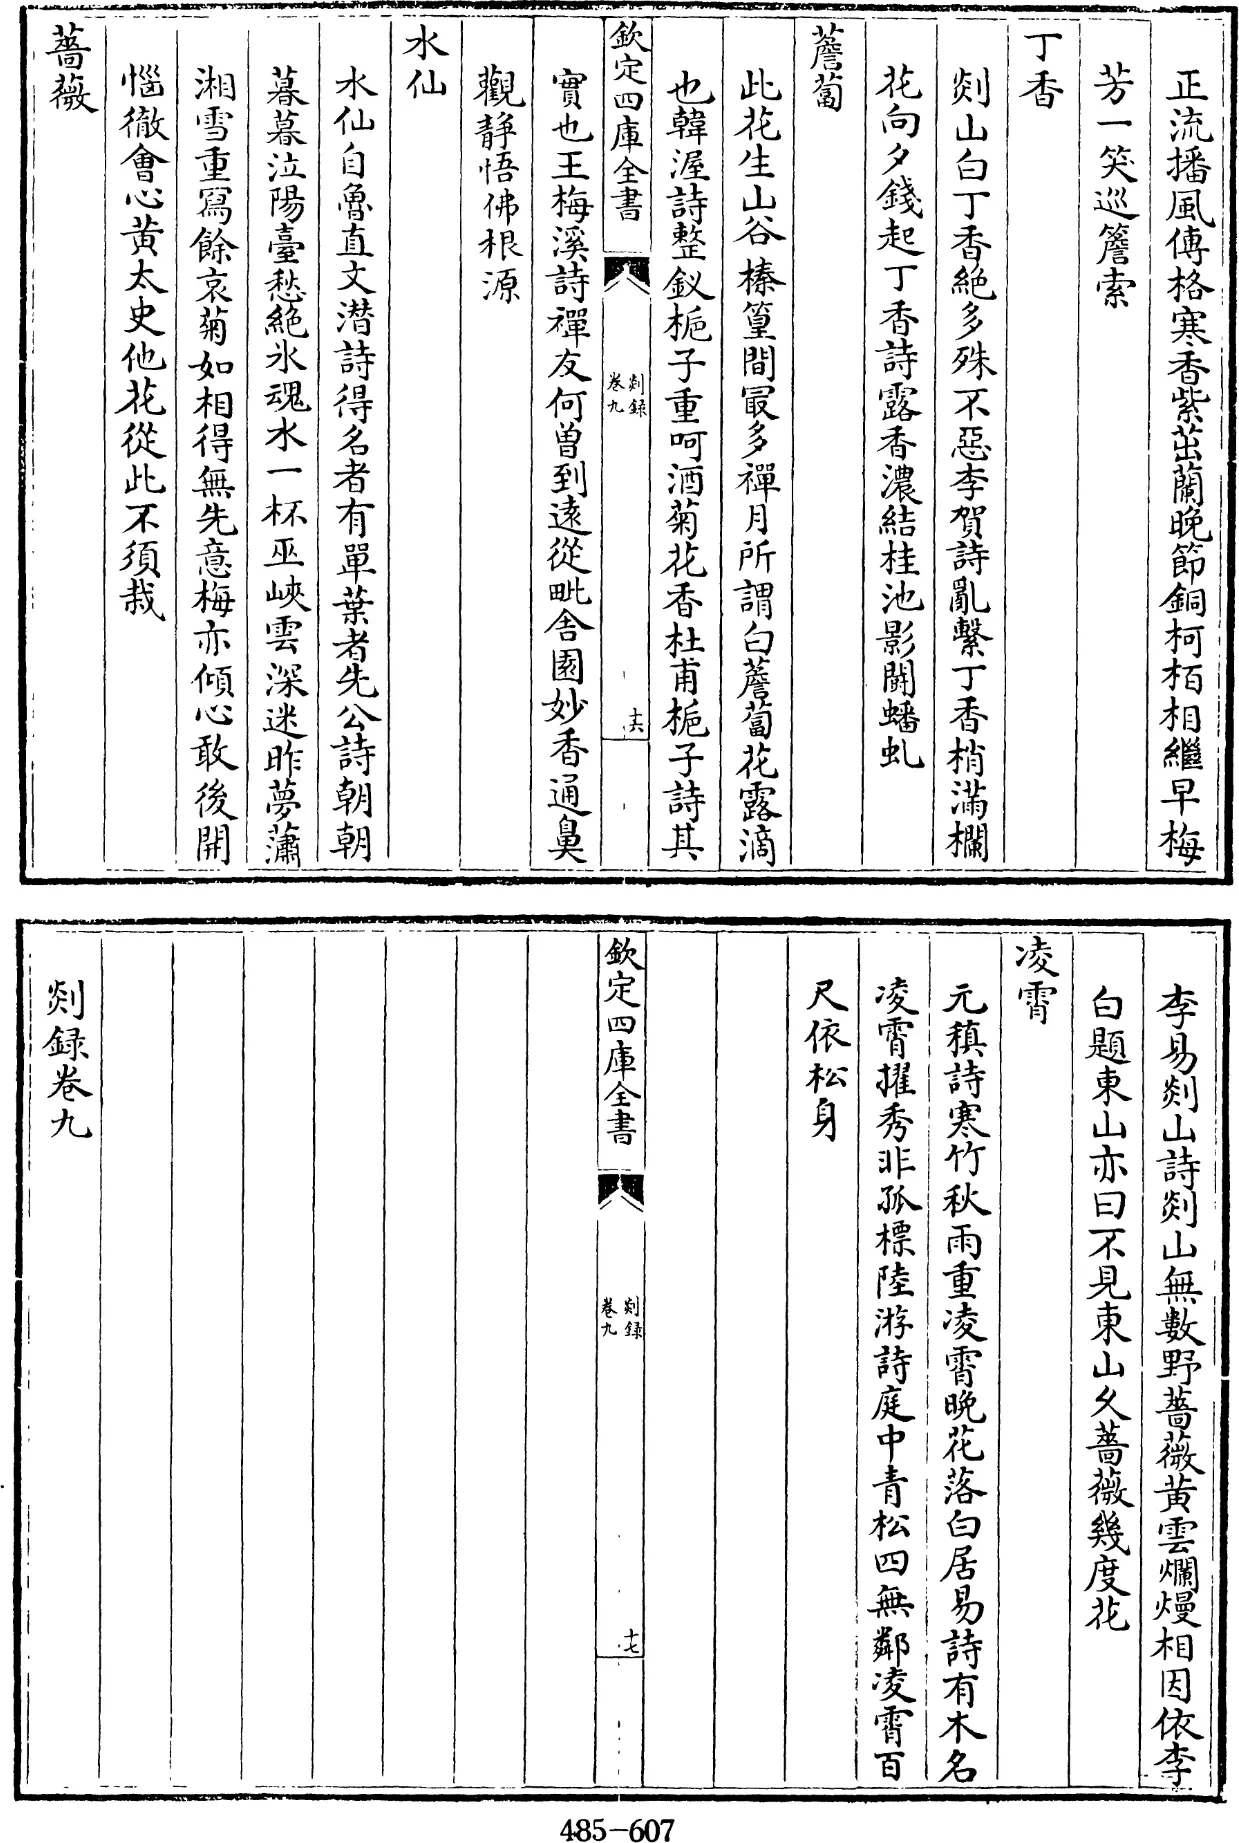 正流播風傳格寒香紫茁蘭晚節銅柯栢相繼早梅
芳一笑巡簷索
丁香
剡山白丁香絶多殊不惡李賀詩亂繫丁香梢滿欄
花向夕錢起丁香詩露香濃結桂池影鬭蟠虬
薝蔔
此花生山谷榛篁間冣多禪月所謂白薝蔔花露滴
也韓渥詩整釵梔子重呵酒菊花香杜甫梔子詩其
欽定四庫全書
剡録
卷九
十六
實也王梅溪詩禪友何曽到逺從毗舎園妙香通鼻
觀静悟佛根源
水仙
水仙自魯直文潜詩得名者有單葉者先公詩朝朝
暮暮泣陽臺愁絶氷魂水一杯巫峽雲深迷昨夢瀟
湘雪重寫餘哀菊如相得無先意梅亦傾心敢後開
惱徹會心黄太史他花從此不須栽
薔薇
李易剡山詩剡山無數野薔薇黄雲爛熳相因依李
白題東山亦曰不見東山乆薔薇幾度花
凌霄
元稹詩寒竹秋雨重凌霄晚花落白居易詩有木名
凌霄擢秀非孤標陸游詩庭中青松四無鄰凌霄百
尺依松身
欽定四庫全書
剡録
卷九
十七
剡録卷九
485-607